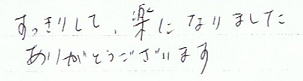 すっきりして、楽になりました
ありがとうございます